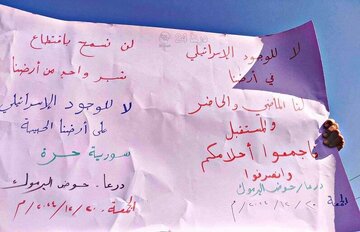 لا للوجود الإسرائيلي
في أرضنا
لنا الماضي والحاضر
والمستقبل
اجمعوا أحلامكم
وانصرفوا
درعا / حوض اليرموك
الجمعة ٢٠ / ١٢ / ٢٠٢٤ م
لن نسمح باقتطاع
شبر واحد من أرضنا
لا للوجود الإسرائيلي
على أرضنا الحبيبة
سورية حرة
درعا . حوض اليرموك
الجمعة ٢٠ / ١٢ / ٢٠٢٤ م